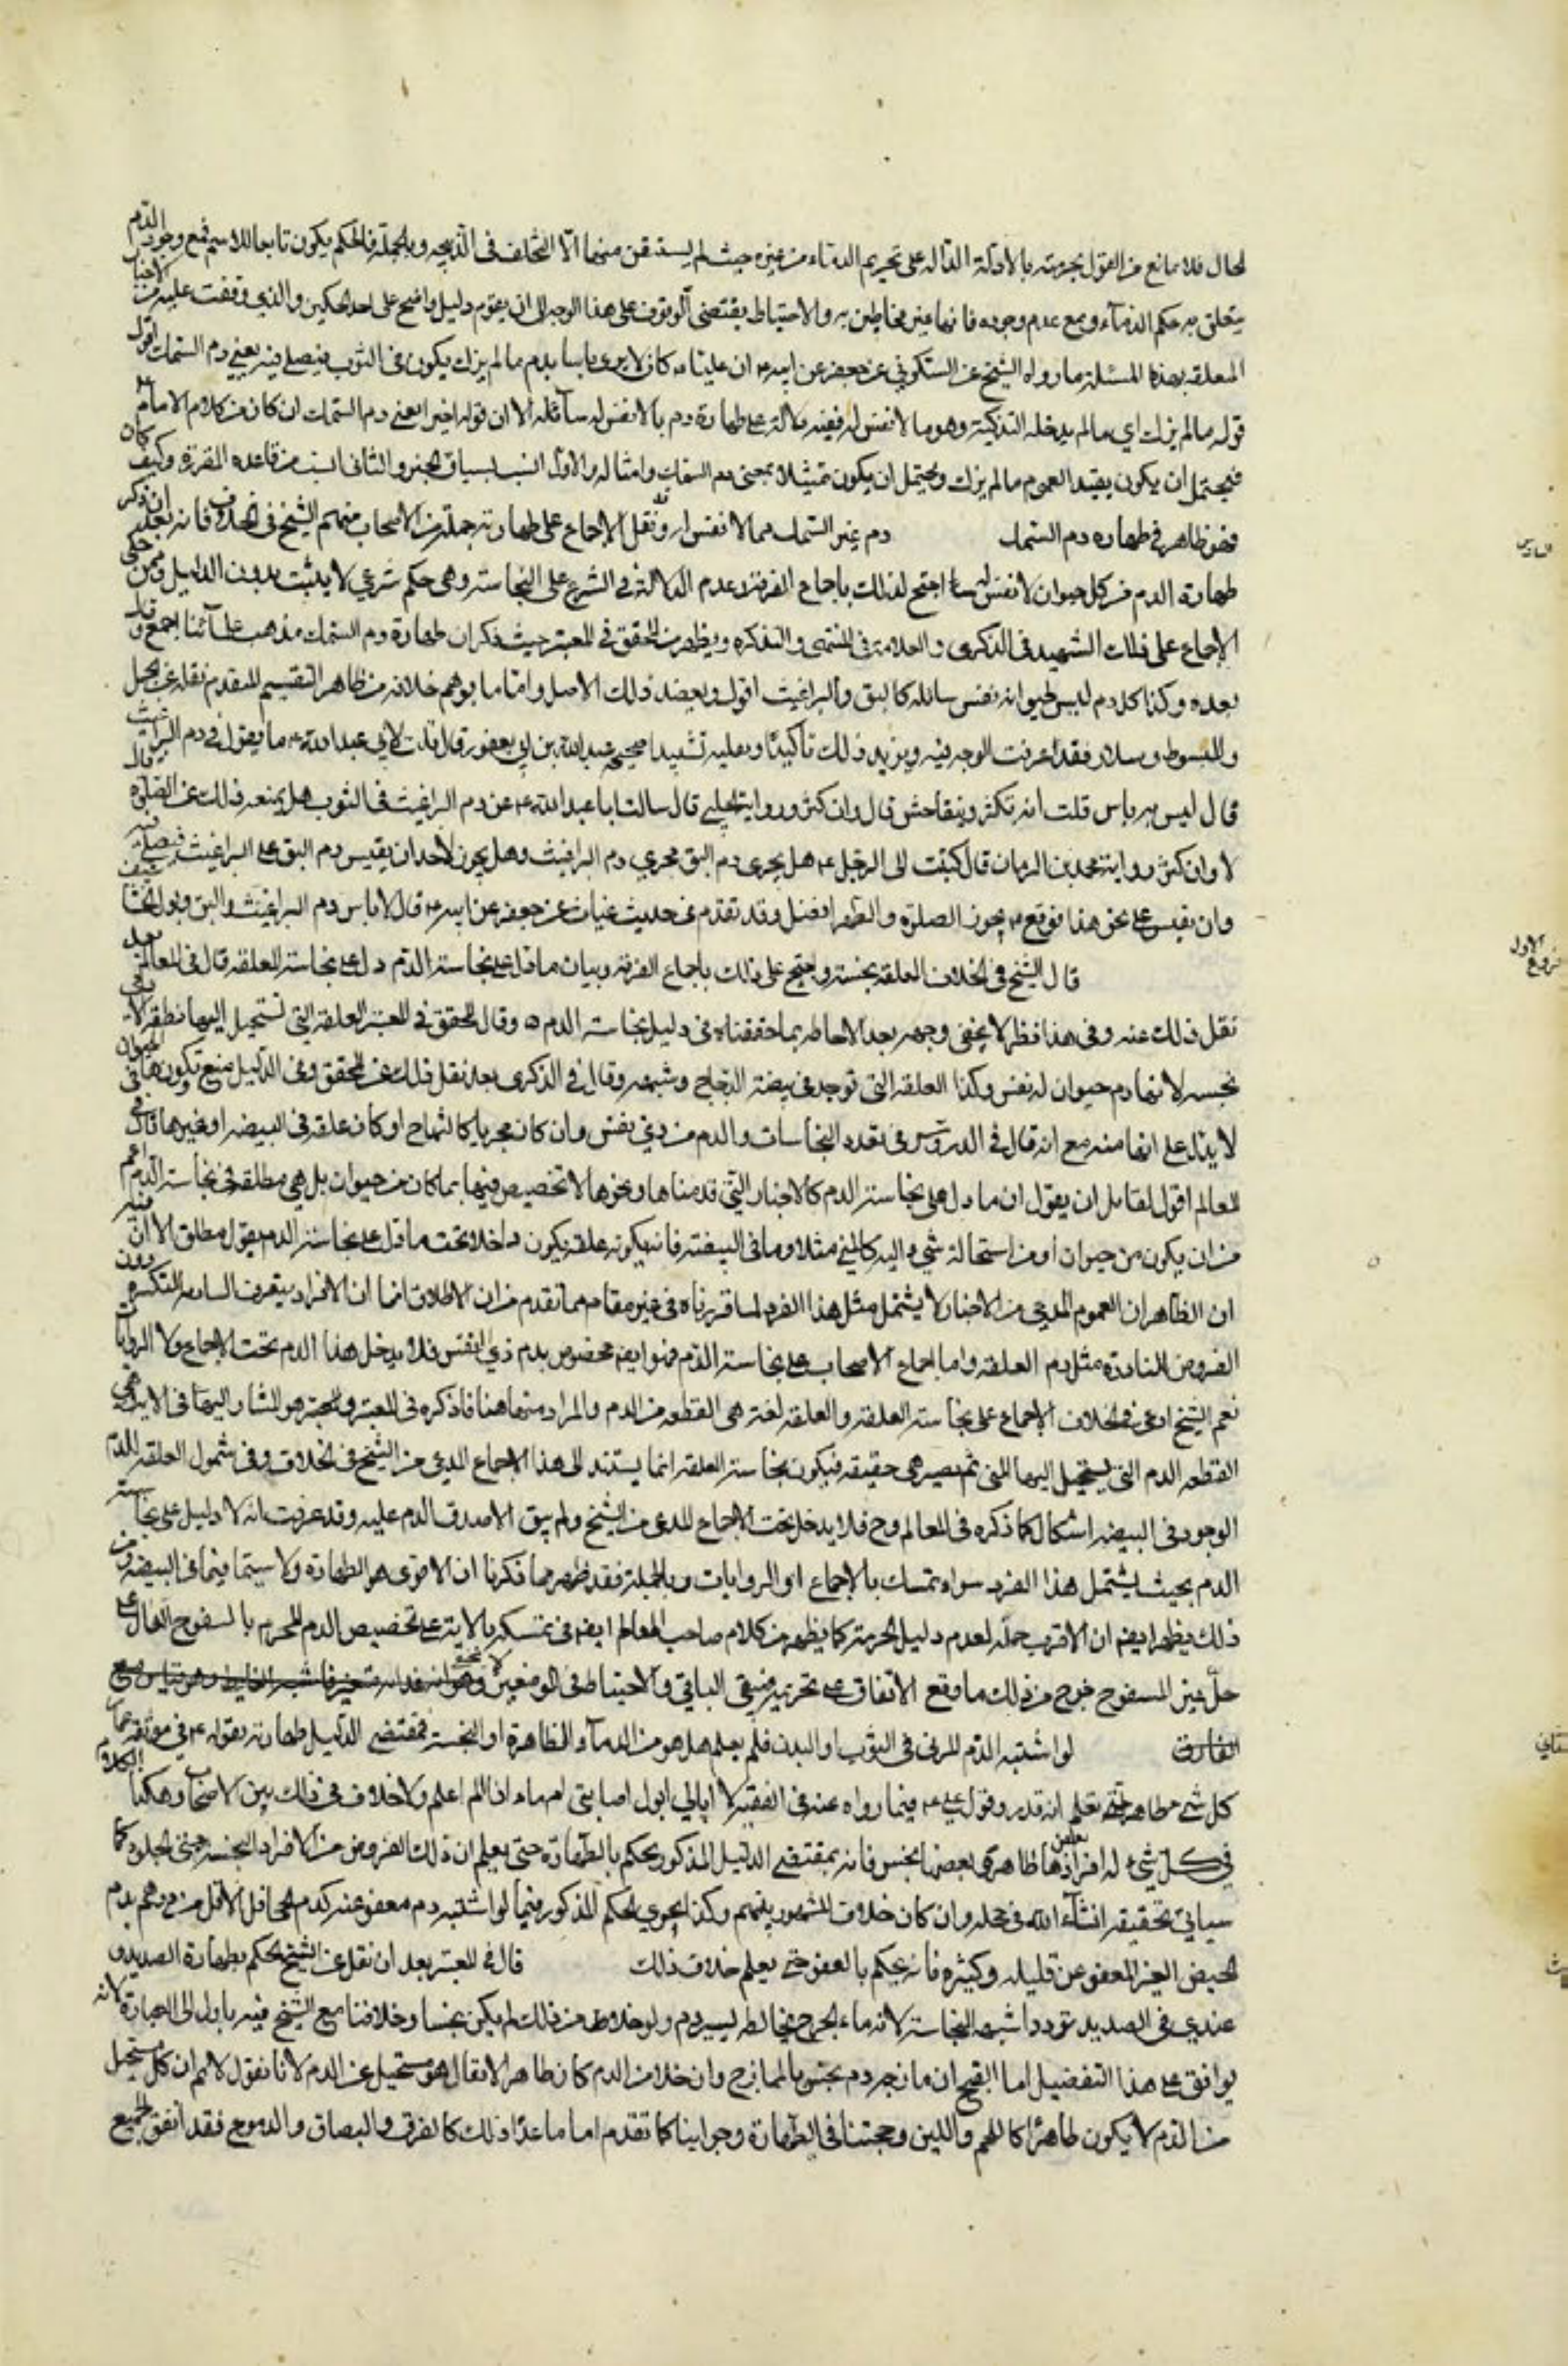 لحال فلا مانع من القول بحرمته بالادلة الدالة على تحريم الدماء من غيره حيث لم يستثن منها الا المتخلف في الذبيحه وبالجملة فالحكم يكون تابعا للاسم فمع وجود الدم
يتعلق به حكم الدماء ومع عدم وجوده فانها غير مخاطبين به والاحتياط يقتضي الوقوف على هذا الوجه الى ان يقوم دليل واضح على احد الحكمين والذي وقفت عليه من الاخبار
المتعلقه بهذه المسئلة ما رواه الشيخ عن السكوني عن جعفر عن ابيه ع ان عليا ع كان لا يرى باسا بدم ما لم يزك يكون في الثوب فيصلي فيه يعني دم السمك اقول
قوله ما لم يزك اي ما لم يدخله التذكية وهو ما لا نفس له ففيه دلالة على طهارة دم ما لا نفس له سائله الا ان قوله اخيرا يعني دم السمك ان كان من كلام الامام ع
فيحتمل ان يكون يقيد العموم ما لم يزك ويحتمل ان يكون تمثيلا بمعنى دم السمك وامثاله والاول انسب بسياق الخبر والثاني انسب من قاعده المقررة وكيف كان
فهو ظاهر في طهاره دم السمك دم غير السمك مما لا نفس له وقد نقل الاجماع على طهارته جملة من الاصحاب منهم الشيخ في الخلاف فانه بعد ان ذكر
طهارة الدم من كل حيوان لا نفس له سائله احتج لذلك باجماع الفرقة وعدم الدلالة في الشرع على النجاسة وهي حكم شرعي لا يثبت بدون الدليل وممن حكى
الاجماع على ذلك الشهيد في الذكرى والعلامة في المنتهى والتذكره ويظهر من المحقق في المعتبر حيث ذكر ان طهارة دم السمك مذهب علمائنا اجمع وقال
بعده وكذا كل دم ليس لحيوانه نفس سائله كالبق والبراغيث اقول ويعضد ذلك الاصل واما ما يوهم خلافه من ظاهر التقسيم المتقدم نقله عن الجمل
والمبسوط وسلار فقد عرفت الوجه فيه ويزيد ذلك تاكيدا ويعليه تشييدا صحيحة عبد الله بن ابي يعفور قال قلت لابي عبد الله ع ما يقول في دم البراغيث
قال ليس به باس قلت انه يكثر ويتفاحش قال وان كثر ورواية الحلبي قال سالت ابا عبد الله ع عن دم البراغيث في الثوب هل يمنعه ذلك عن الصلوة قال
لا وان كثر ورواية محمد بن الريان قال كتبت الى الرجل ع هل يجري دم البق مجرى دم البراغيث وهل يجوز لاحد ان يقيس دم البق على البراغيث فيصلي فيه
وان يقيس على نحو هذا فوقع ع يجوز الصلوة والطهر افضل وقد تقدم في حديث غياث عن جعفر عن ابيه ع قال لا باس بدم البراغيث والبق وبول الخشاشيف
قال الشيخ في الخلاف العلقه نجسة واحتج على ذلك باجماع الفرقة وبيان ما دل على نجاسة الدم دل على نجاسة العلقه قال في المعالم بعد
نقل ذلك عنه وفي هذا نظر لا يخفى وجهه بعد الاحاطه بما حققناه في دليل نجاسة الدم ه وقال المحقق في المعتبر العلقة التي تستحيل اليها نطفة الادمي
نجسه لانها دم حيوان له نفس وكذا العلقه التي توجد في بيضة الدجاج وشبهه وقال في الذكرى بعد نقل ذلك عن المحقق وفي الدليل منع وتكونها في الحيوان
لا يدل على انها منه مع انه قال في الدروس في تعداد النجاسات والدم من ذي نفس وان كان بحريا كالتمساح او كان علقه في البيضه او غيرها قال في
المعالم اقول لقائل ان يقول ان ما دل على نجاسة الدم كالاخبار التي قدمناها ونحوها لا تخصيص فيها بما كان من حيوان بل هي مطلقه في نجاسة الدم اعم
من ان يكون من حيوان او من استحالة شيء اليه كالمني مثلا وما في البيضة فانه يكونه علقه يكون داخلا تحت ما دل على نجاسة الدم بقول مطلق الا ان فيه
ان الظاهر ان العموم المدعى من الاخبار لا يشتمل مثل هذا الفرد لما قررناه في غير مقام مما تقدم من ان الاطلاق انما الافراد يتصرف السايعه المتكثره دون
الفروض النادرة مثل دم العلقه واما اجماع الاصحاب على نجاسة الدم فهو ايضا مخصوص بدم ذي النفس فلا يدخل هذا الدم تحت الاجماع ولا الروايات
نعم الشيخ ادعى في الخلاف الاجماع على نجاسة العلقة والعلقه لغة هي القطعه من الدم والمراد منها هنا ما ذكره في المعتبر وهو المشار اليها في الاية
القطعه الدم التي يستحيل اليها المني ثم يصير هي حقيقه فيكون نجاسة العلقه انما يستند الى هذا الاجماع المدعى من الشيخ في الخلاف وفي شمول العلقه للدم
الموجود في البيضه اشكال كما ذكره في المعالم وح فلا يدخل تحت الاجماع المدعى من الشيخ ولم يبق الا صدق الدم عليه وقد عرفت انه لا دليل على نجاسته
الدم بحيث يشتمل هذا الفرد سواء تمسك بالاجماع او الروايات وبالجملة فقد ظهر مما ذكرنا ان الاقوى هو الطهارة ولا سيما فيما في البيضه ومن
ذلك يظهر ايضا ان الاقرب حله لعدم دليل الحرمة كما يظهر من كلام صاحب المعالم ايضا في تمسكه بالاية على تخصيص الدم المحرم بالمسفوح الدال على
حل غير المسفوح خرج من ذلك ما وقع الاتفاق على تحريمه فبقي الباقي والاحتياط في الموضعين لا يخفى
لو اشتبه الدم المرئي في الثوب او البدن فلم يعلم هل هو من الدماء الطاهرة او النجسة فمقتضى الدليل طهارته بقوله ع في موثقه عمار
كل شيء طاهر حتى تعلم انه قذر وقول علي ع فيما رواه عنه في الفقيه لا ابالي ابول اصابني ام ماء اذا لم اعلم ولا خلاف في ذلك بين الاصحاب وهكذا الكلام
في كل شيء له افراد بعضها طاهر وبعضها نجس فانه بمقتضى الدليل المذكور يحكم بالطهارة حتى يعلم ان ذلك الفروض من الافراد النجسه حتى الجلود كما
سياتي تحقيقه انشاء الله في محله وان كان خلاف المشهور بينهم وكذا يجري الحكم المذكور فيما لو اشتبه دم معفو عنه كدم الاقل من درهم بدم
الحيض الغير المعفو عن قليله وكثيره فانه يحكم بالعفو حتى يعلم خلاف ذلك قال في المعتبر بعد ان نقل عن الشيخ الحكم بطهارة الصديد و
عندي في الصديد تردد اشبهه النجاسة لانه ماء الجرح يخالطه يسير دم ولو خلا من ذلك لم يكن نجسا وخلافنا مع الشيخ فيه يؤول الى العبارة لانه
يوافق على هذا التفصيل اما القيح ان مازجه دم نجس بالممازج وان خلا من الدم كان طاهرا لا يقال هو مستحيل عن الدم لانا نقول لا نم ان كل مستحيل
من الدم لا يكون طاهرا كاللحم واللبن وحجتنا في الطهارة وجوابنا كما تقدم اما ما عدا ذلك كالعرق والبصاق والدموع فقد اتفق الجميع
السادس
الاول
فروع
الثاني